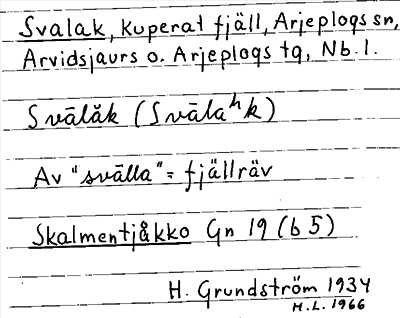 Svalak, kuperat fjäll, Arjeplogs sn,
Arvidsjaurs o. Arjeplogs tg, Nb. l.
Svālăk (Svālaʰk)
Av "svālla" = fjällräv
Skalmentjåkko Gn 19 (b 5)
H. Grundström 1934
M.L. 1966